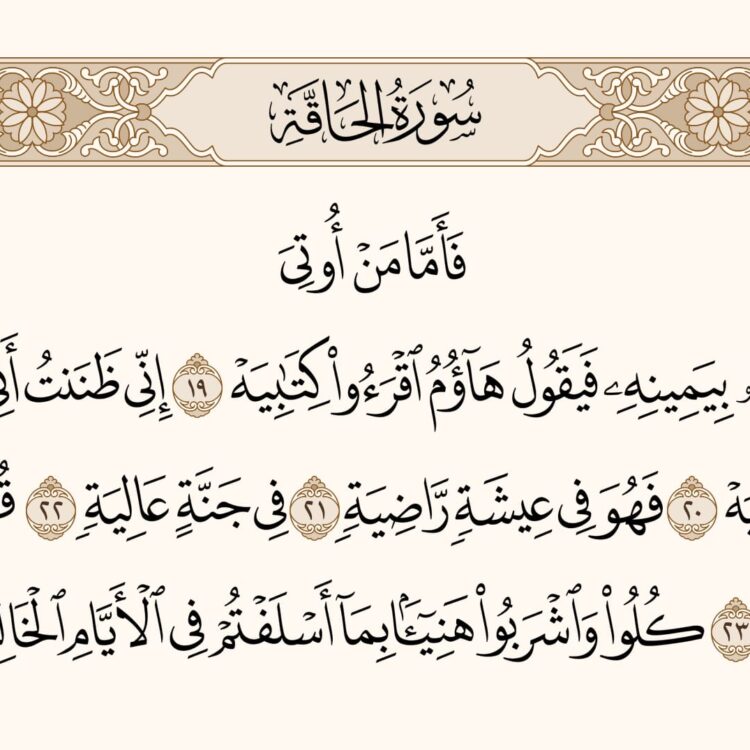 سُورَةُ الحَاقَّةِ
فَأَمَّا مَنۡ أُوتِيَ
بِيَمِينِهِۦ فَيَقُولُ هَآؤُمُ ٱقۡرَءُواْ كِتَٰبِيَهۡ ١٩ إِنِّي ظَنَنتُ
٢٠ فَهُوَ فِي عِيشَةٖ رَّاضِيَةٖ ٢١ فِي جَنَّةٍ عَالِيَةٖ ٢٢
٢٣ كُلُواْ وَٱشۡرَبُواْ هَنِيٓـَٔۢا بِمَآ أَسۡلَفۡتُمۡ فِي ٱلۡأَيَّامِ